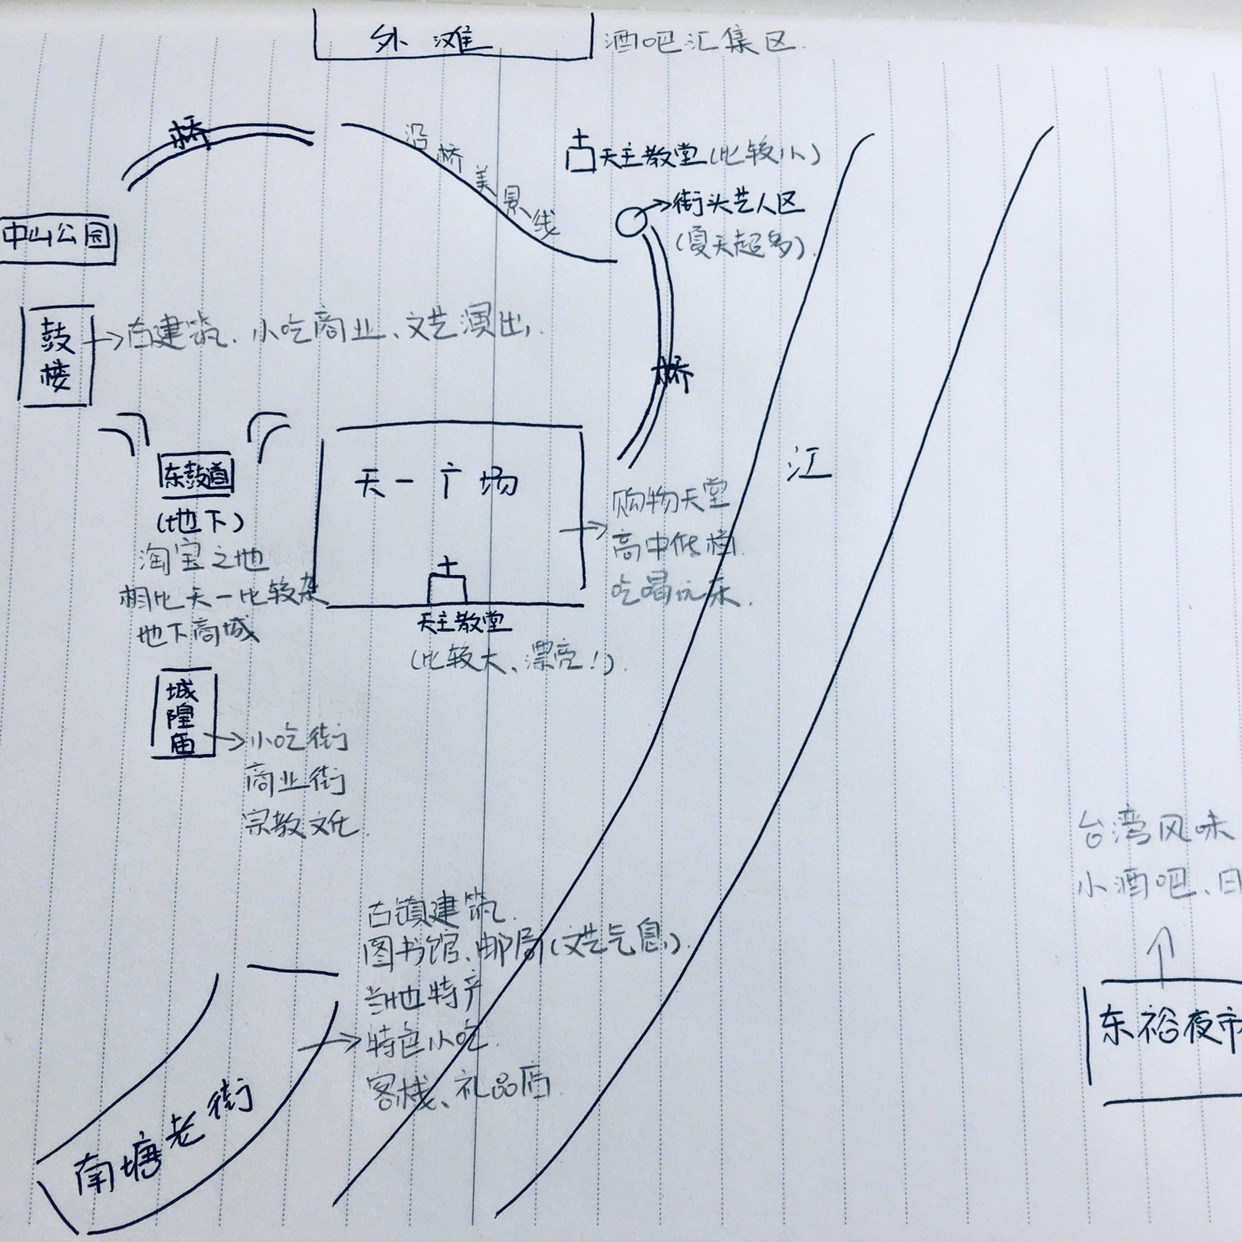 外滩
酒吧汇集区.
桥
沿桥美景线
天主教堂(比较小)
街头艺人区
(夏天超多).
中山公园
鼓楼
古建筑、小吃商业、文艺演出.
桥
江
东鼓道
(地下)
淘宝之地
相比天一比较杂
地下商城
天一广场
购物天堂
高中低档.
吃喝玩乐.
天主教堂
(比较大、漂亮!).
城隍庙
小吃街
商业街
宗教文化.
台湾风味
小酒吧、日
东裕夜市
古镇建筑.
图书馆、邮局(文艺气息).
当地特产
特色小吃.
客栈、礼品店.
南塘老街